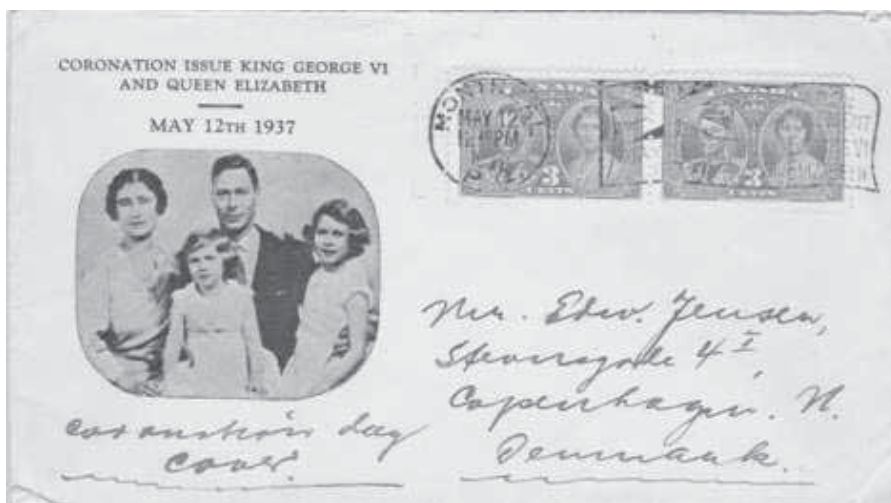 CORONATION ISSUE KING GEORGE VI
AND QUEEN ELIZABETH
MAY 12TH 1937
MONTR
MAY 12
PM
CANADA
3 3
CENTS CENTS
Mr. Edw. Jensen,
4 I,
Copenhagen. N.
Denmark.
coronation day
cover.